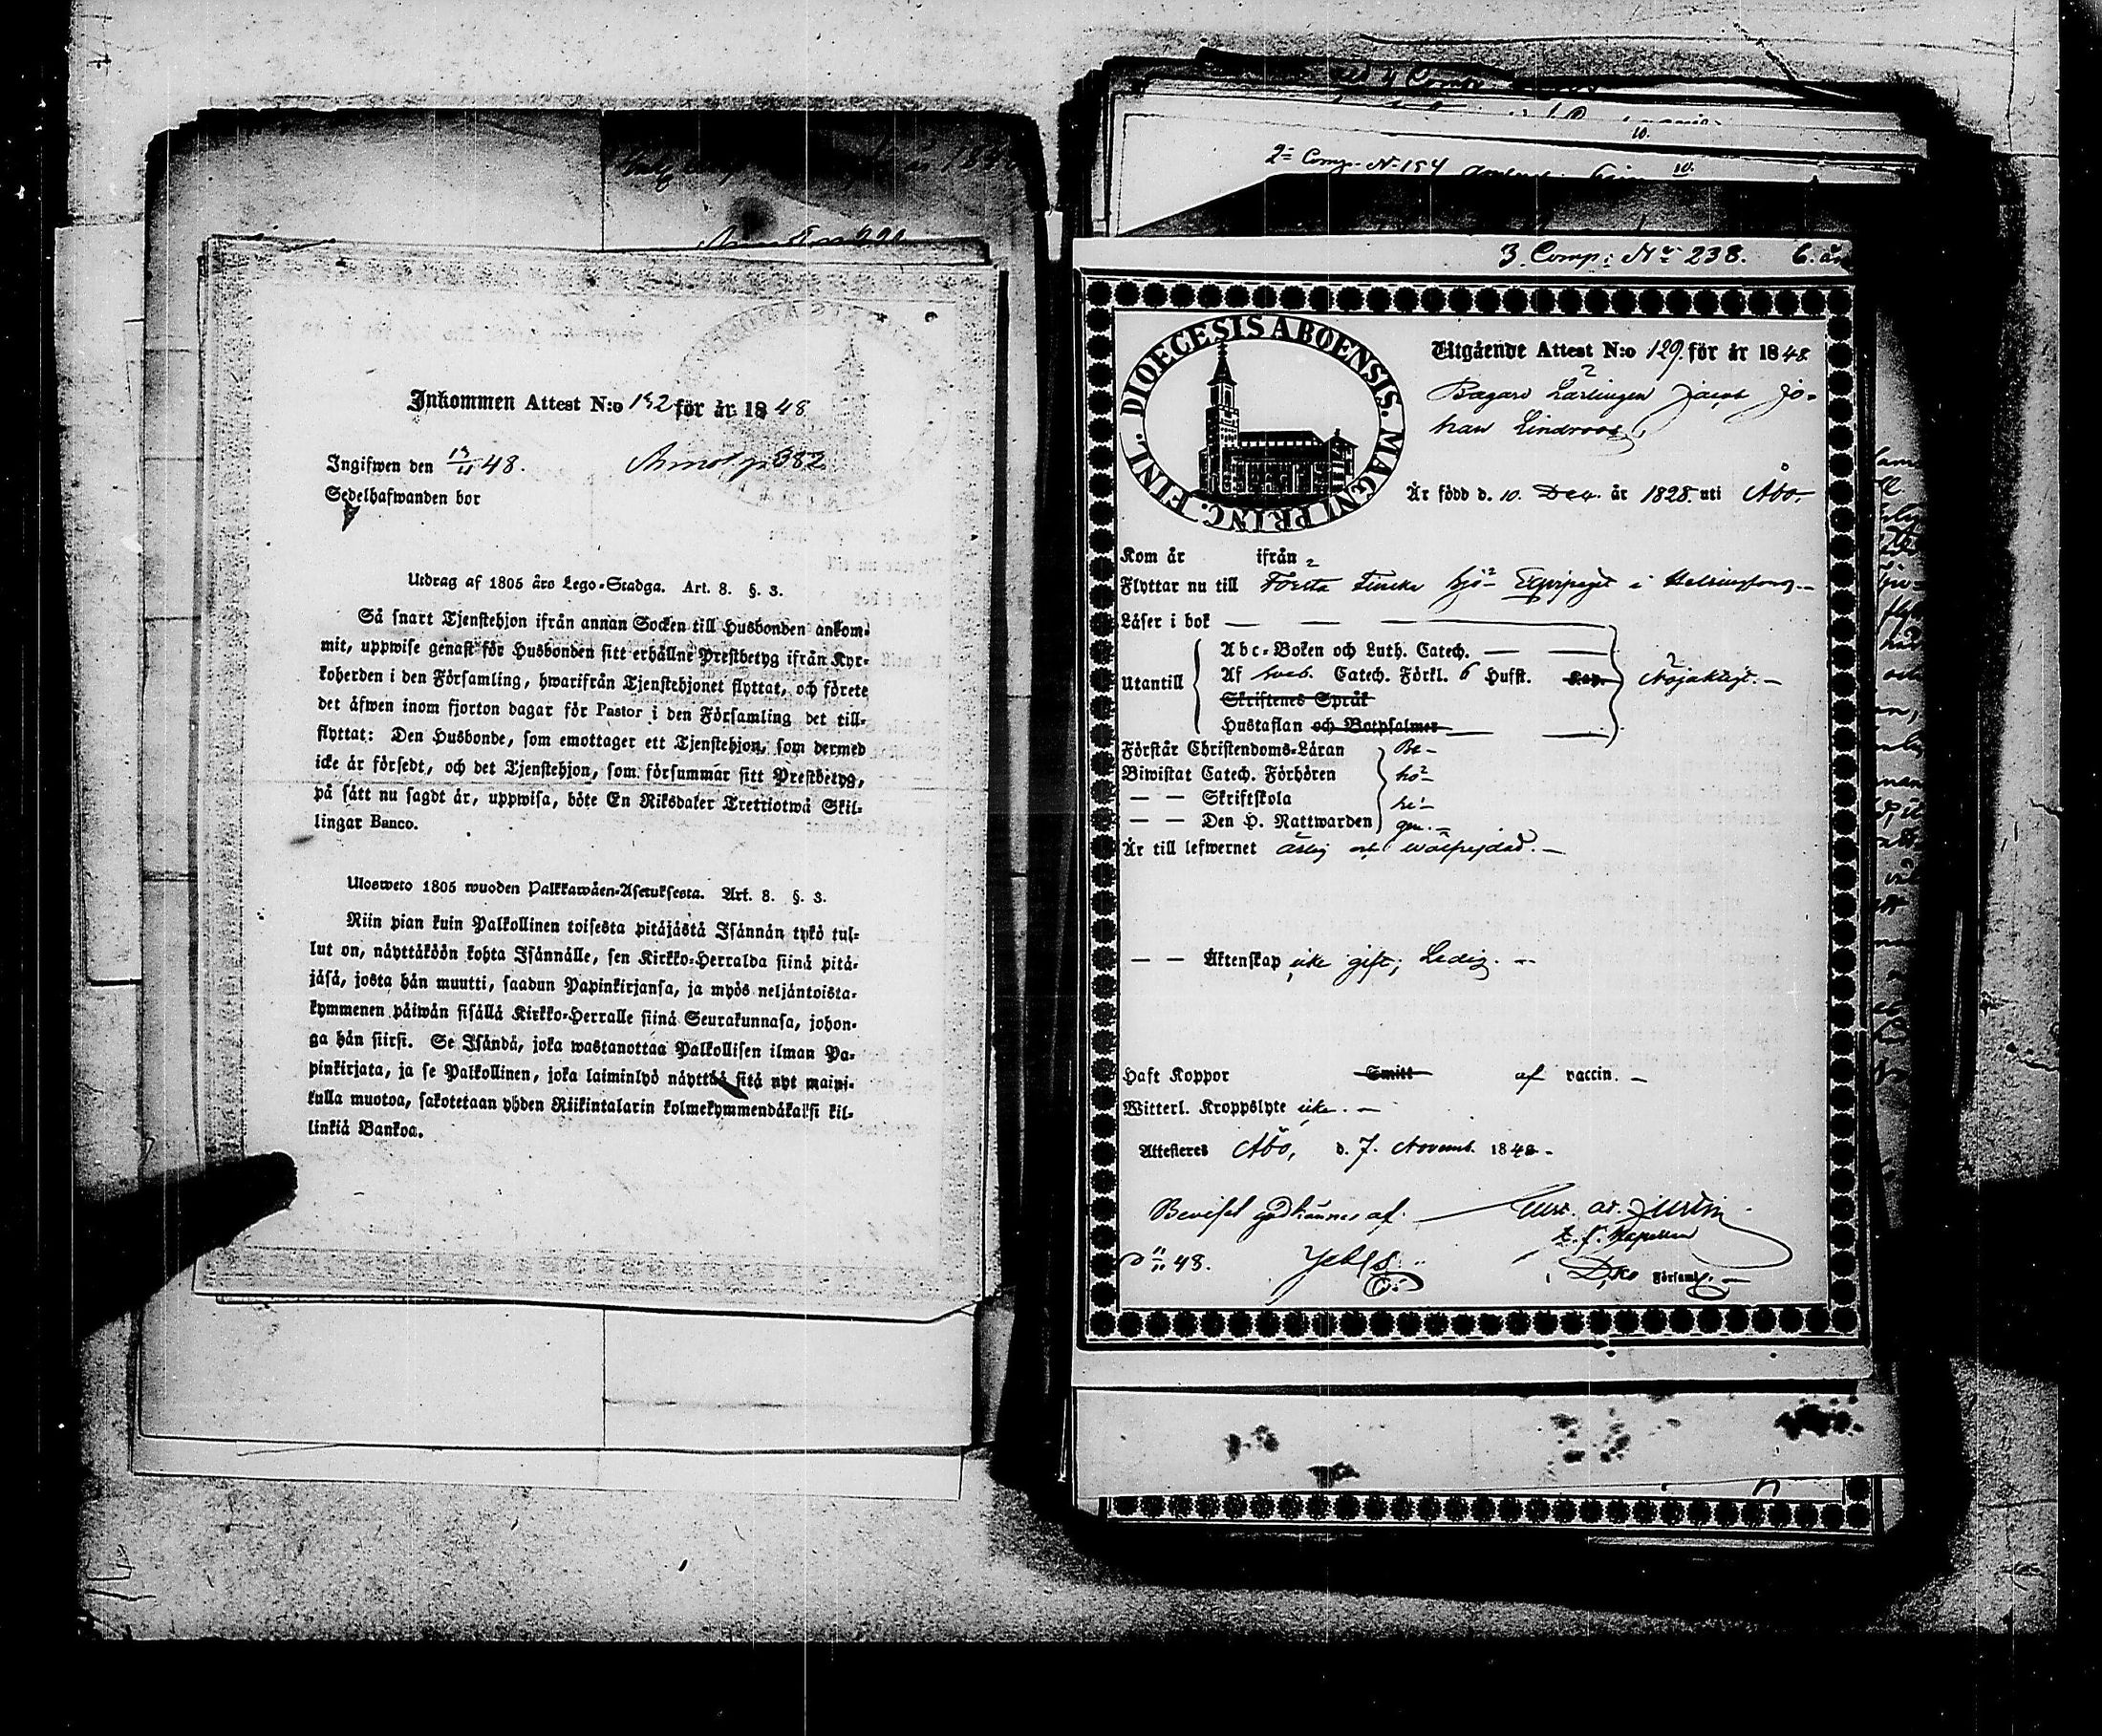 Inkommen Attest N:o 132 för år 1848
Ingifwen den 13/11 48.
p 382
Sedelhafwanden bor
Utdrag af 1805 års Lego-Stadga. Art. 8. §. 3.
Så snart Tjenstehjon ifrån annan Socken till Husbonden ankom-
mit, uppwise genast för Husbonden sitt erhållne Prestbetyg ifrån Kyr-
koherden i den Församling, hwarifrån Tjenstehjonet flyttat, och förete
det äfwen inom fjorton dagar för Pastor i den Församling det till-
flyttat: Den Husbonde, som emottager ett Tjenstehjon, som dermed
icke är försedt, och det Tjenstehjon, som försummar sitt Prestbetyg,
på sätt nu sagdt är, uppwisa, böte En Riksdaler Tretriotwå Skil-
lingar Banco.
Ulosweto 1805 wuoden Palkkawäen-Asetuksesta. Art. 8. §. 3.
Niin pian kuin Palkollinen toisesta pitäjästä Isännän tykö tul-
lut on, näyttäköön kohta Isännälle, sen Kirkko-Herralda siinä pitä-
jäsä, josta hän muutti, saadun Papinkirjansa, ja myös neljäntoista-
kymmenen päiwän sisällä Kirkko-Herralle siinä Seurakunnasa, johon-
ga hän siirsi. Se Isändä, joka wastanottaa Palkollisen ilman Pa-
pinkirjata, ja se Palkollinen, joka laiminlyö näyttää sitä nyt maini-
tulla muotoa, sakotetaan yhden Riikintalarin kolmekymmendäkaksi kil-
linkiä Bankoa.
2ª Comp. N. 154
10.
3. Comp: Nr 238. 6. år
DIOECESIS ABOENSIS. MAGNI PRINC. FINL.
Utgående Attest N:o 129. för år 1848
Bagare Lärlingen Jacob Jo-
han Lindroos,
Är född d. 10. Dec. år 1828. uti Åbo.
Kom år ifrån
Flyttar nu till Första Finska Sjö Equipaget i Helsingfors.
Läser i bok
Utantill
Abc-Boken och Luth. Catech.
Af sved. Catech. Förkl. 6 Hufst. Kap. Nöjaktigt.
Skriftenes Språk
Hustaflan och Botpsalmer
Förstår Christendoms-Läran Be-
Biwistat Catech. Förhören hö-
— — Skriftskola
— — Den H. Nattwarden
Är till lefwernet ärlig och wälfrejdad.
— — Äktenskap icke gift; Ledig.
Haft Koppor Smitt af vaccin.
Witterl. Kroppslyte icke.
Attesteres Åbo, d. 7. Novemb. 1848
Beviset godkännes af
d 11/11 48.
t. f. Kapellan
Församl.